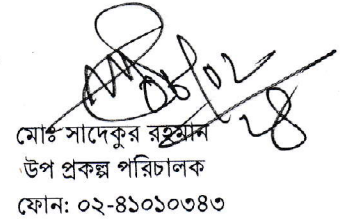 ০৮/০২
২৪
মোঃ সাদেকুর রহমান
উপ প্রকল্প পরিচালক
ফোন: ০২-৪১০১০৩৪৩